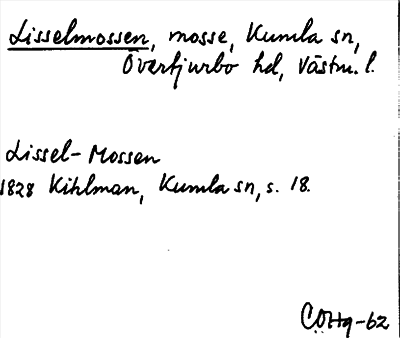 Lisselmossen, mosse, Kumla sn,
Övertjurbo hd, Västm. l.
Lissel-Mossen
1828 Kihlman, Kumla sn, s. 18.
COHq-62